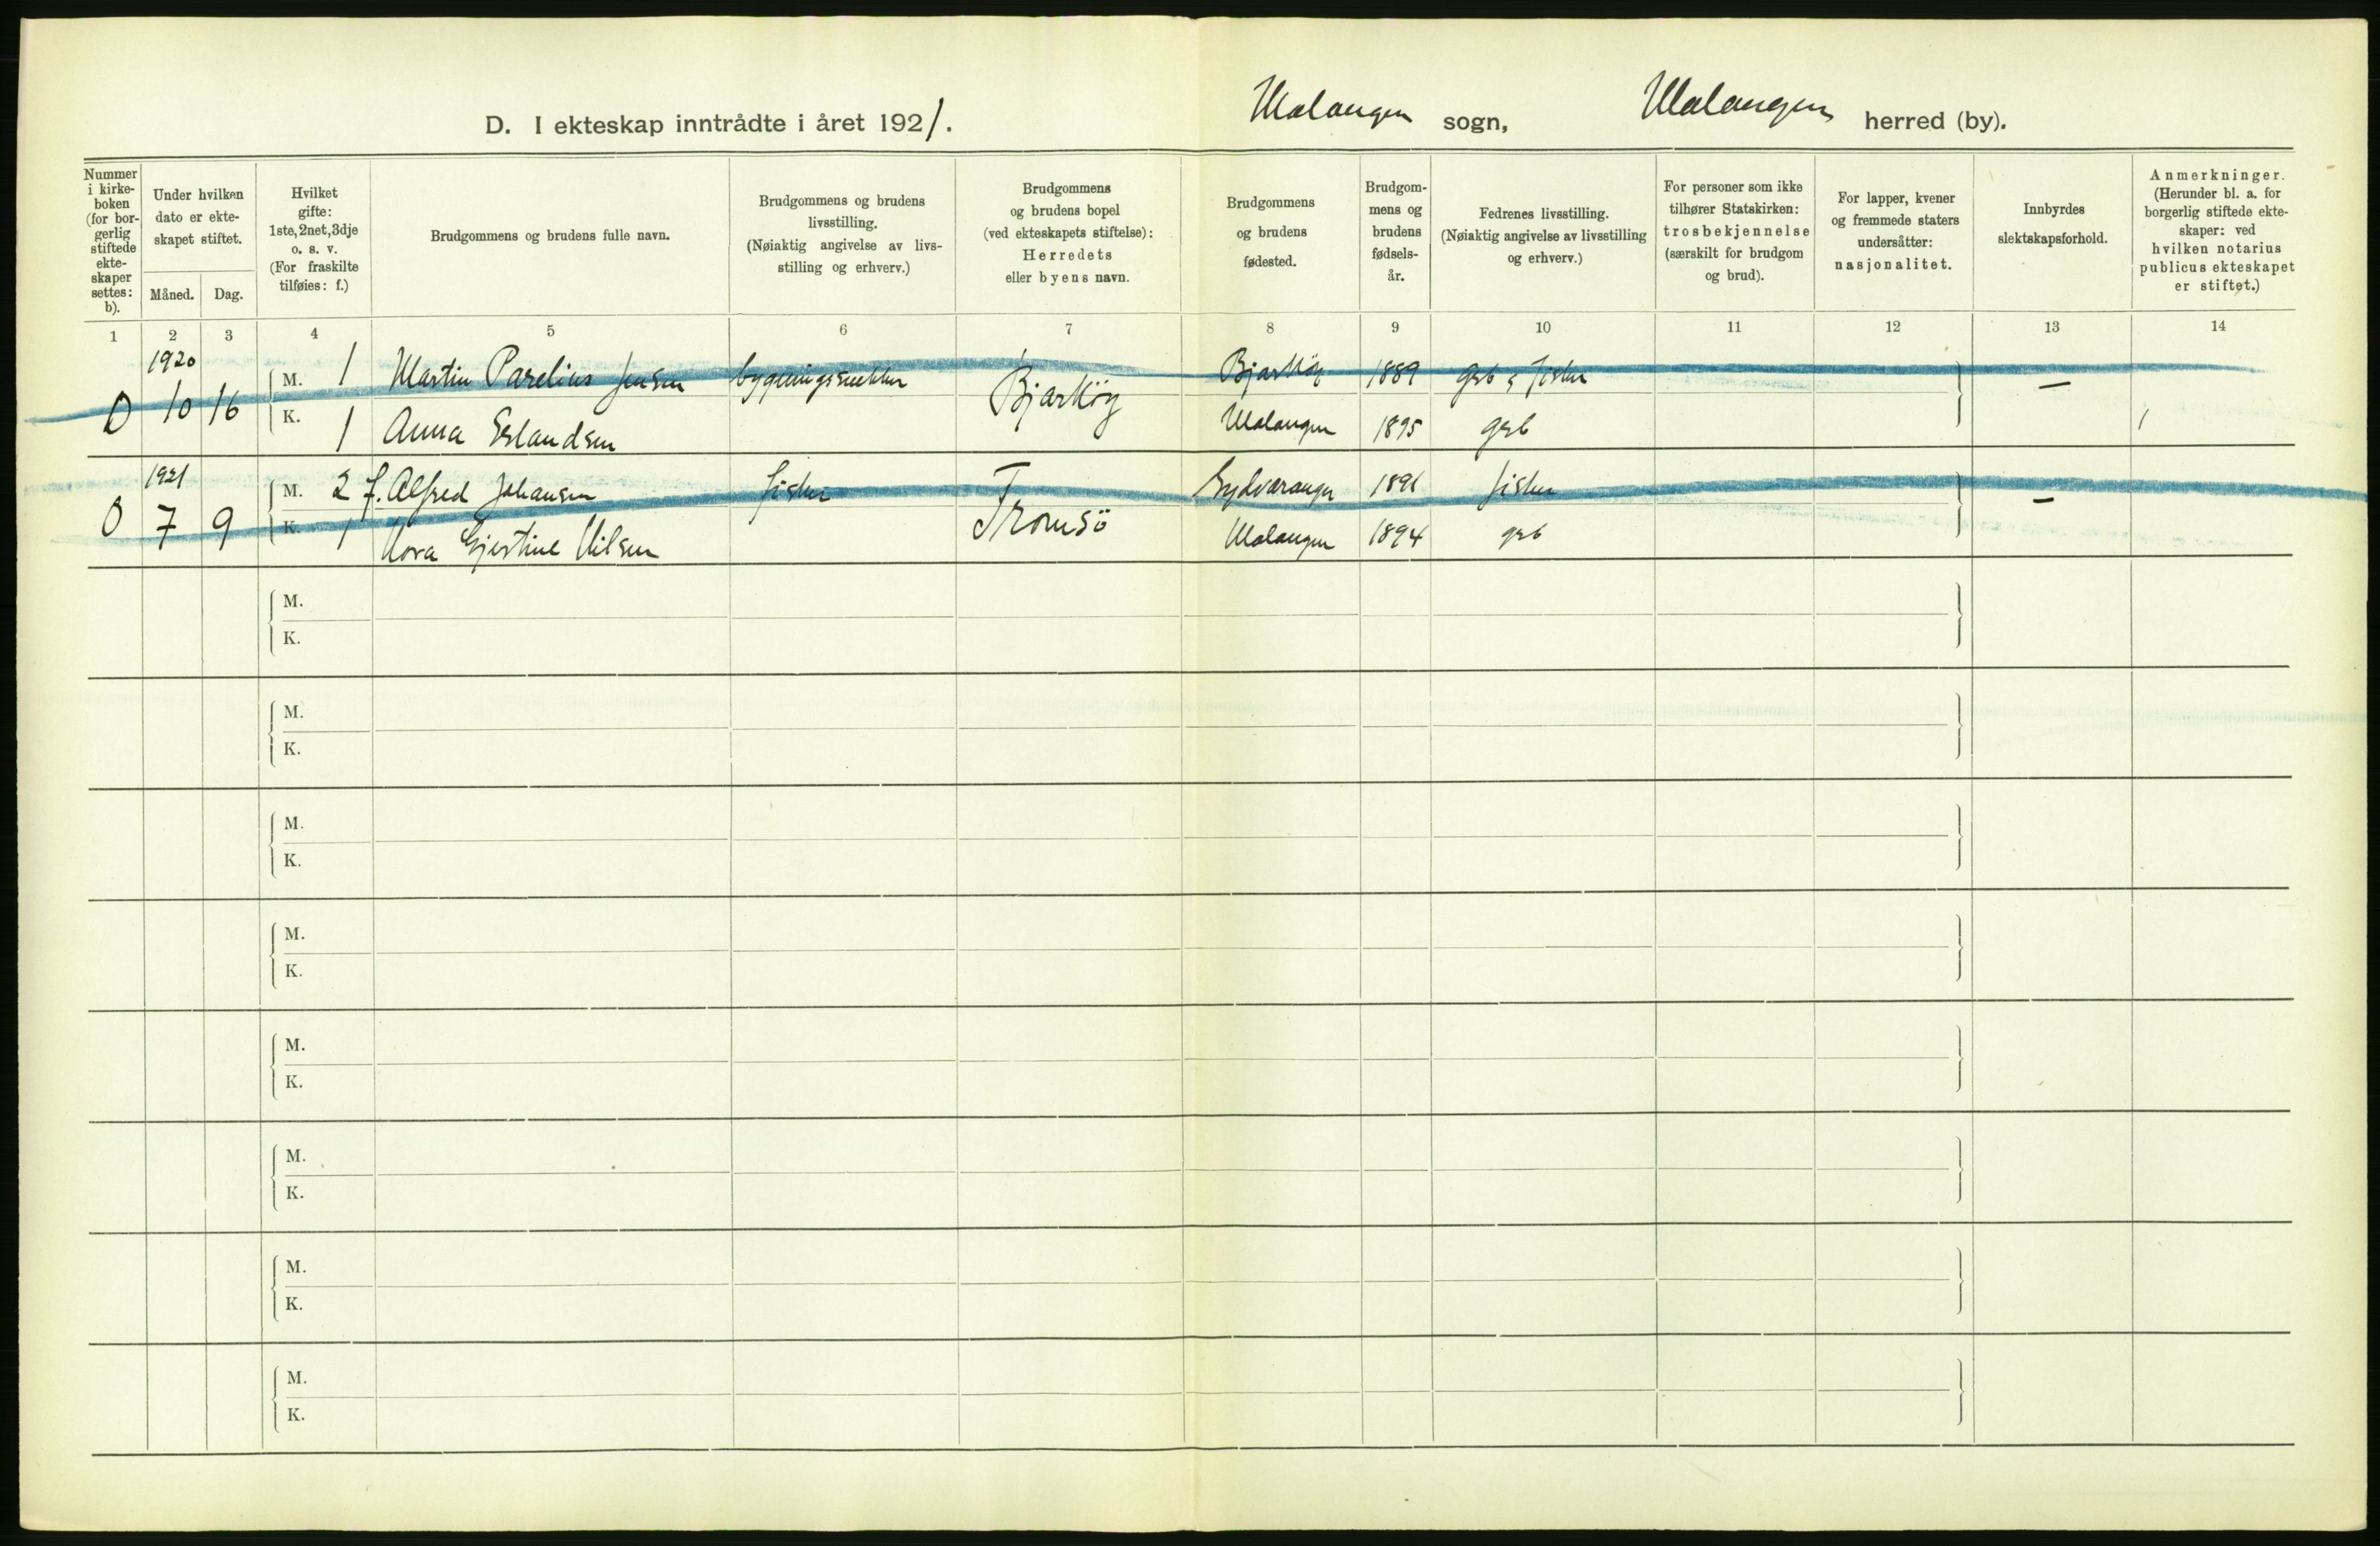 D. I ekteskap inntrådte i året 1921. Malangen sogn, Malangen herred (by).
Nummer i kirke-boken (for bor-gerlig stiftede ekte-skaper settes: b).
Under hvilken dato er ekte-skapet stiftet.
Måned. Dag.
Hvilket gifte: 1ste, 2net, 3dje o. s. v. (For fraskilte tilføies: f.)
Brudgommens og brudens fulle navn.
Brudgommens og brudens livsstilling. (Nøiaktig angivelse av livs-stilling og erhverv.)
Brudgommens og brudens bopel (ved ekteskapets stiftelse): Herredets eller byens navn.
Brudgommens og brudens fødested.
Brudgom-mens og brudens fødsels-år.
Fedrenes livsstilling. (Nøiaktig angivelse av livsstilling og erhverv.)
For personer som ikke tilhører Statskirken: trosbekjennelse (særskilt for brudgom og brud).
For lapper, kvener og fremmede staters undersåtter: nasjonalitet.
Innbyrdes slektskapsforhold.
Anmerkninger. (Herunder bl. a. for borgerlig stiftede ekte-skaper: ved hvilken notarius publicus ekteskapet er stiftet.)
1 2 3 4 5 6 7 8 9 10 11 12 13 14
1920
0 10 16
M. 1 Martin Parelius Jensen bygningssnekker Bjarköy Bjarköy 1889 grb & fisker —
K. 1 Anna Erlandsen Malangen 1895 grb
1921
0 7 9
M. 2 f. Alfred Johansen fisker Tromsö Sydvaranger 1891 fisker —
K. 1 Nora Gjertine Nilsen Malangen 1894 grb
M.
K.
M.
K.
M.
K.
M.
K.
M.
K.
M.
K.
M.
K.
M.
K.